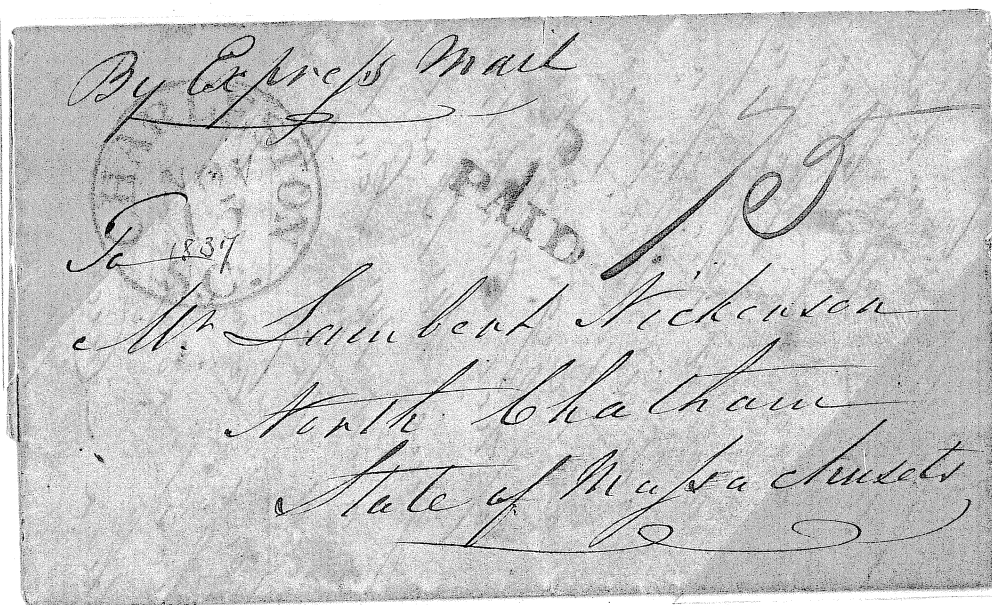 By Express Mail
PAID
75
To 1837
Mr Lambert Nickerson
North Chatham
State of Massachusets